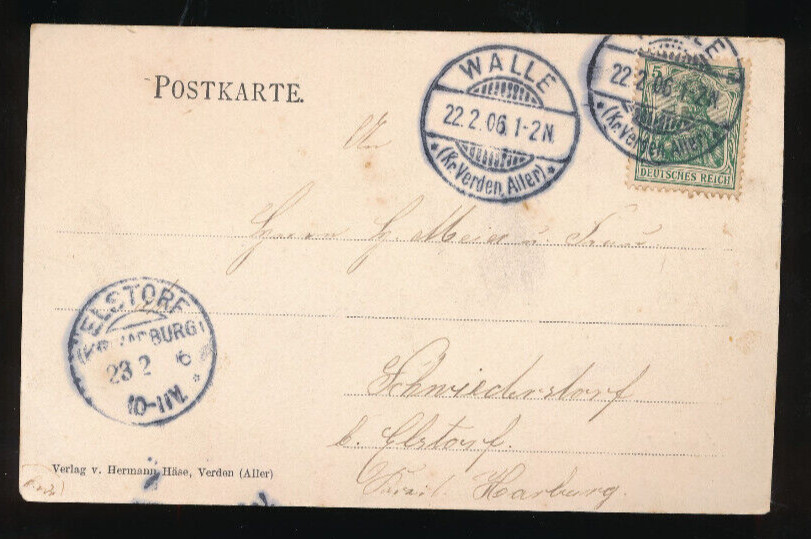 POSTKARTE.
WALLE
22.2.06.1-2N.
*(Kr.Verden, Aller)*
LE
22.2.06.1-2N
*(Kr.Verden, Aller)
5
DEUTSCHES REICH
An
Herrn H. Meier u. Frau
ELSTORF
BURG)
23 2 6
10-11V.
Schwiederstorf
b. Elstorf.
Harburg.
Verlag v. Hermann Häse, Verden (Aller)